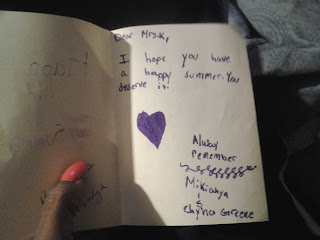 Dear Mrs.K,
I hope you have
a happy summer. You
deserve it!
Alway
remember
Mikiahya
&
Chyna Greene